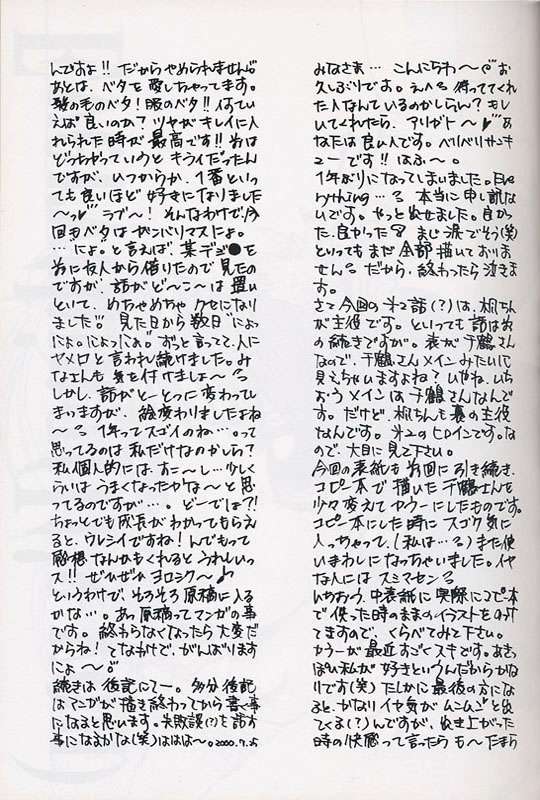 みなさま… こんにちわ〜♥お
久しぶりです。え?待っててくれ
た人なんているのかしらん? もし
いてくれたら、アリガト〜♥ あ
なたは良い人です。ベリベリサンキ
ューです!! はふ〜。
1年ぶりになってしまいました。Eve
rything…? 本当に申し訳な
いです。やっと出せました。良か
った、良かった? まじ涙でそう(笑)
といってもまだ全部描いておりま
せん? だから、終わったら泣きま
す。
さて今回の第2話(?)は、梓ちん
が主役です。といっても話は前
の続きですが。表が千鶴さん
なので、千鶴さんメインみたいに
見えちゃいますよね? いやね、いち
おうメインは千鶴さんなんで
す。だけど、梓ちんも裏の主役
なんです。第2のヒロインです。な
ので、大目に見て下さい。
今回の表紙も前回に引き続き、
コピー本で描いた千鶴さんを
少々変えてカラーにしたものです。
コピー本にした時にスゴク気に
入っちゃって、(私は…?)また使
いまわしになっちゃいました。イヤ
な人にはスミマセン?
いちおう、中表紙に実際にコピー本
で使った時のままのイラストをのけ
てますので、くらべてみて下さい。
カラーが最近すごくスキです。あきっ
ぽい私が好きというんだからかな
りです(笑) たしかに最後の方にな
ると、かなりイヤ気がムンムンと出
てくる(?)んですが、出き上がった
時の快感って言ったら も〜たまら
んですよ!! だからやめられません。
あとは、ベタを愛しちゃってます。
髪の毛のベタ!服のベタ!!何てい
えば良いのか? ツヤがキレイに入
れられた時が最高です!! 前は
どっちかっていうとキライだったん
ですが、いつからか、1番といっ
ても良いほど好きになりました
〜っ♥ラブ〜! そんなわけで今
回もベタはガンバリマスにょ。
…“にょ。”と言えば、某デジ●を
前に友人から借りたので見たの
ですが、話がど〜こ〜は置い
といて、めちゃめちゃクセになり
ました!! 見た日から数日“にょっ
にょ。にょっにょ。”ずっと言ってて、人に
ヤメロと言われ続けました。み
なさんも気を付けましょ〜?
しかし、話がとーとつに変わってし
まっますが、絵変わりましたよね
〜? 1年ってスゴイのね…。って
思ってるのは私だけなのかしら?
私個人的には、すこ〜し…少しく
らいはうまくなったかな〜と思
ってるのですが…。どーでしょ?!
ちょっとでも成長がわかってもらえ
ると、ウレシイですね!んでもって
感想なんかもくれるとうれしいっ
ス!! ぜひぜひヨロシク〜♪
というわけで、そろそろ原稿に入る
かな…。あっ原稿ってマンガの事
です。終わらなくなったら大変だ
からね! てなわけで、がんばります
にょ〜。
続きは後記にてー。多分後記
はマンガが描き終わってから書く事
になると思います。失敗談(?)を話す
事になるかな(笑)ははは〜。2000.7.25